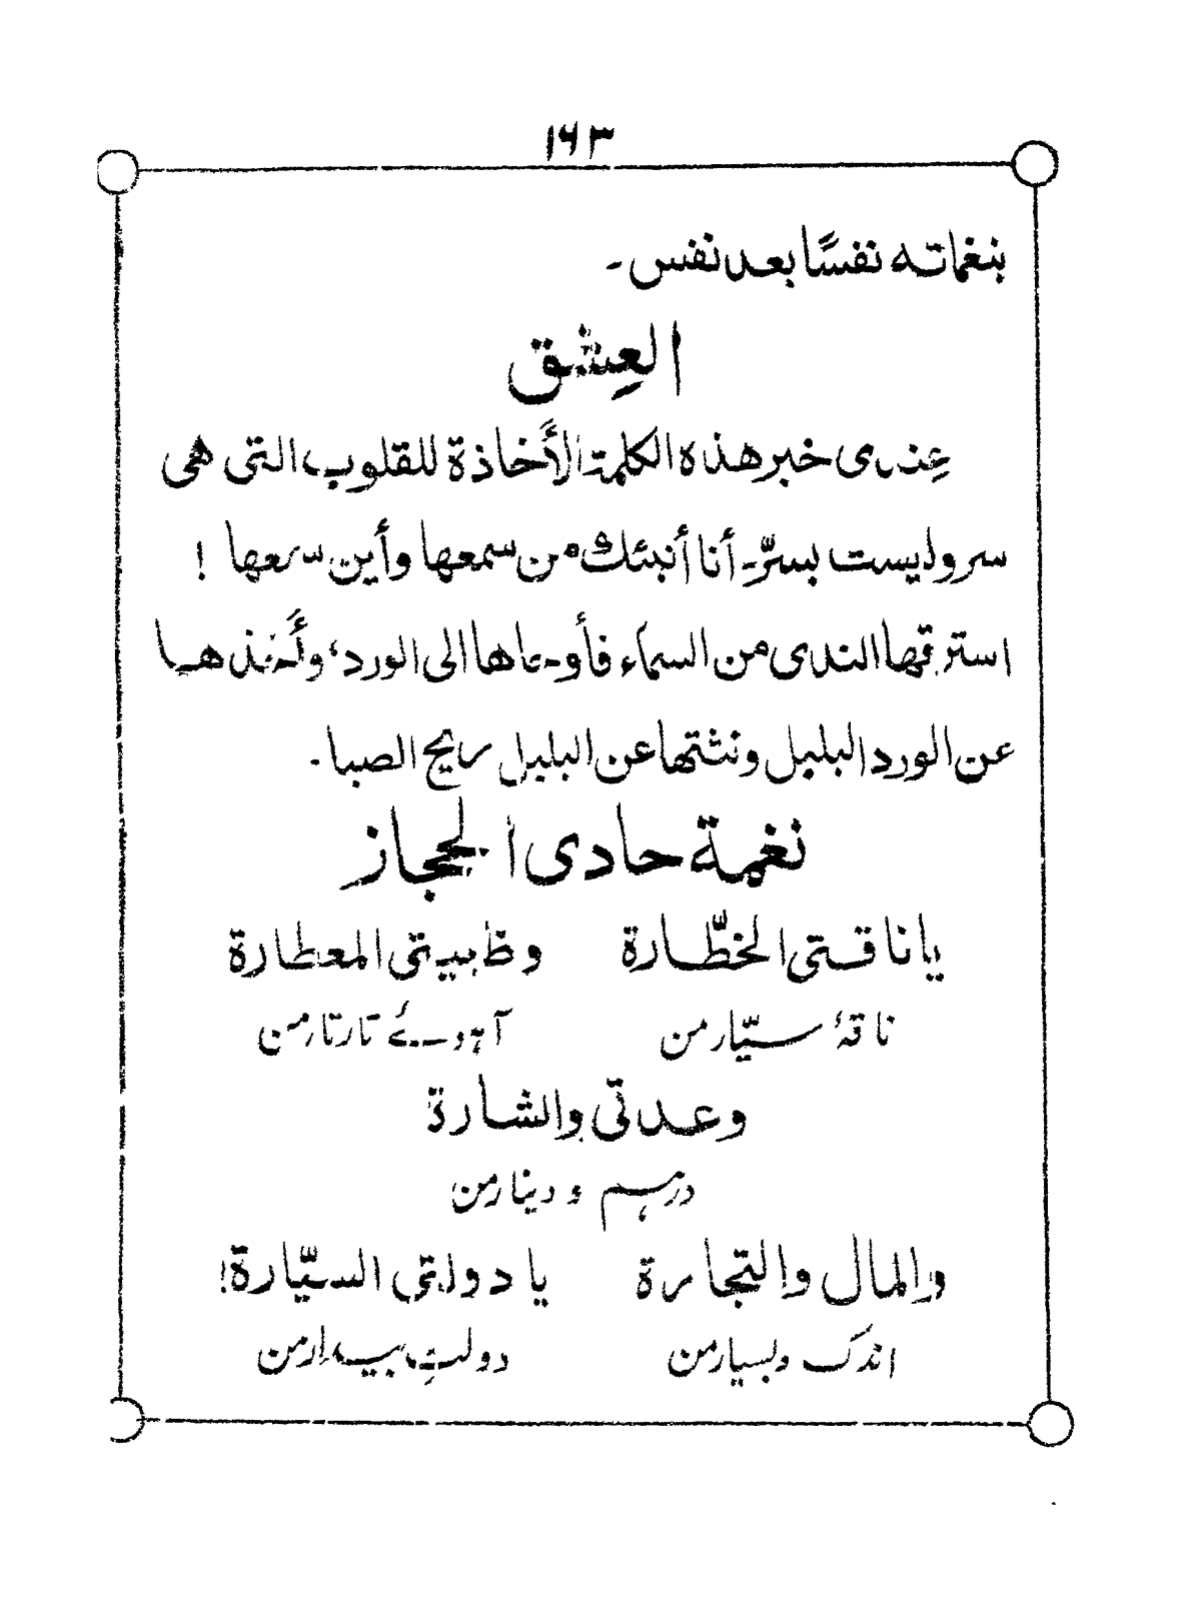 ١٦٣
بنغماته نفسًا بعد نفس -
العِشق
عِندى خبر هذه الكلمة الأَخاذة للقلوب التى هى
سر وليست بسرّ - أنا أنبئك من سمعها وأين سمعها !
استرقها الندى من السماء فأوحاها الى الورد، وأَخذها
عن الورد البلبل ونثتها عن البلبل ريح الصبا .
نغمة حادى الحجاز
يا ناقتى الخطّارة وظبيتى المعطارة
ناقۂ سیّار من آہوئے تاتار من
وعدتى والشارة
درہم و دینار من
والمال والتجارة يا دولتى السيّارة!
اندک و بسیار من دولتِ بیدار من